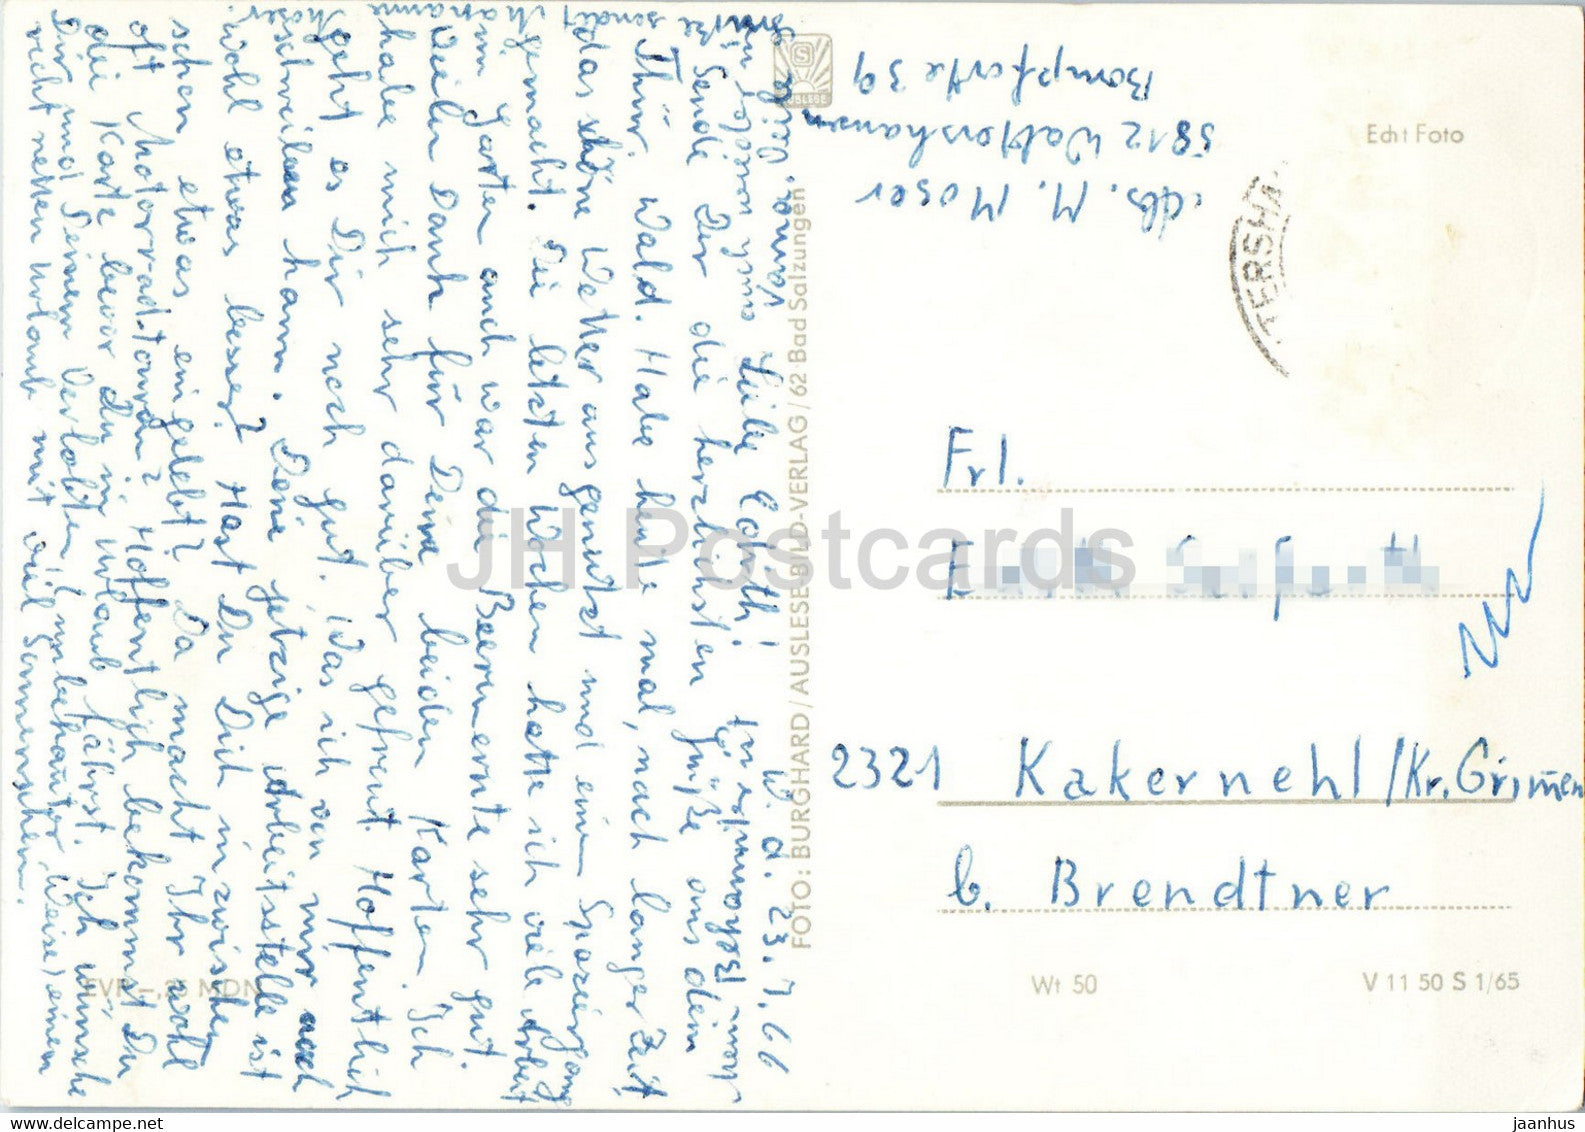 W. d. 23. 7. 66
Liebe Edith!
Sende Dir die herzlichsten Grüße aus dem
Thür. Wald. Habe heute mal, nach langer Zeit,
das schöne Wetter ausgenutzt und einen Spaziergang
gemacht. Die letzten Wochen hatte ich viele Arbeit
im Garten auch war die Beerenernte sehr gut.
Vielen Dank für Deine beiden Karten. Ich
habe mich sehr darüber gefreut. Hoffentlich
geht es Dir noch gut. Was ich von mir auch
schreiben kann. Deine jetzige Arbeitsstelle ist
wohl etwas besser? Hast Du Dich inzwischen
schon etwas eingelebt? Da macht Ihr wohl
oft Motorradtouren? Hoffentlich bekommst Du
die Karte bevor Du in Urlaub fährst. Ich wünsche
Dir und Deinem Verlobten (unbekannter Weise) einen
recht netten Urlaub mit viel Sonnenschein.
Grüße sendet Marianne
Moser.
FOTO: BURGHARD / AUSLESEBILD-VERLAG / 62 Bad Salzungen
IIVR -,25 MDN
AUSLESE
Abs. M. Moser
5812 Waltershausen
Bornpforte 39
Echt Foto
TERSHA
Frl.
E
2321 Kakernehl / Kr. Grimmen
b. Brendtner
Wt 50
V 11 50 S 1/65
JH Postcards
hippostcard.com
jaanhus